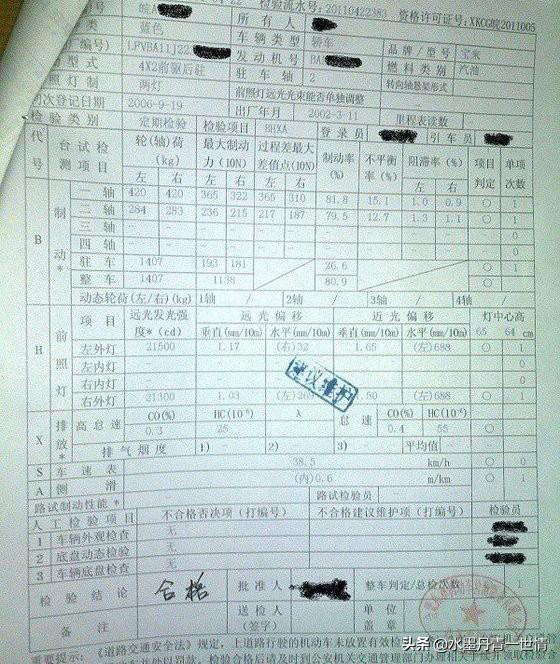 检验流水号: 20110422383 资格许可证号: XKCG皖2011005
皖A 所有人
蓝色 车辆类型 轿车 品牌/型号 宝来
编号) LFVBA11J22 发动机号 BA 燃料类别 汽油
型式 4X2前驱后驻 驻车轴 2 转向轴悬架形式
照灯制 两灯 前照灯远光光束能否单独调整
初次登记日期 2006-9-19 出厂年月 2002-3-11 里程表读数
检验类别 定期检验 检验项目 BHXA 登录员 引车员
代号 台试检测项目 轮(轴)荷(kg) 最大制动力(10N) 过程差最大差值点(10N) 制动率(%) 不平衡率(%) 阻滞率(%) 项目判定 单项次数
左 右 左 右 左 右 左 右
B 制动* 一轴 420 420 365 322 365 310 81.8 15.1 1.0 0.9 ○ 1
二轴 284 283 236 215 217 187 79.5 12.7 1.3 1.1 ○ 1
三轴 - - - - - - - - - - - 0
四轴 - - - - - - - - - - - 0
驻车 1407 193 181 26.6 ○ 1
整车 1407 1138 80.9 ○
动态轮荷(左/右)(kg) 1轴 / 2轴 / 3轴 / 4轴 /
H 前照灯 项目 远光发光强度*(cd) 远光偏移 近光偏移 灯中心高
垂直(mm/10m) 水平(mm/10m) 垂直(mm/10m) 水平(mm/10m) 65 64 cm
左外灯 21500 1.17 (右)32 1.65 (左)688 ○ 1
左内灯 - 0
建议维护
右内灯 - 0
右外灯 21300 1.03 (左)26 50 (左)688 ○ 1
X 排放* 高怠速 CO(%) HC(10⁻⁶) λ 怠速 CO(%) HC(10⁻⁶)
0.3 25 0.4 55 ○ 1
排气烟度 1) - 2) 3) - 平均值 -
S 车速表 38.5 km/h ○ 0
A 侧滑 (内)0.6 m/km ○ 1
路试制动性能* 路试检验员
人工检验项目 不合格否决项(打编号) 不合格建议维护项(打编号) 检验员
1 车辆外观检查 无
2 底盘动态检验 无
3 车辆底盘检查 无
检验结论 合格 批准人 整车判定/总检次数 1
备注 送检人(签字) 单位盖章
重要提示:《道路交通安全法》规定,上道路行驶的机动车未放置有效检
头条 @水墨丹青一世情